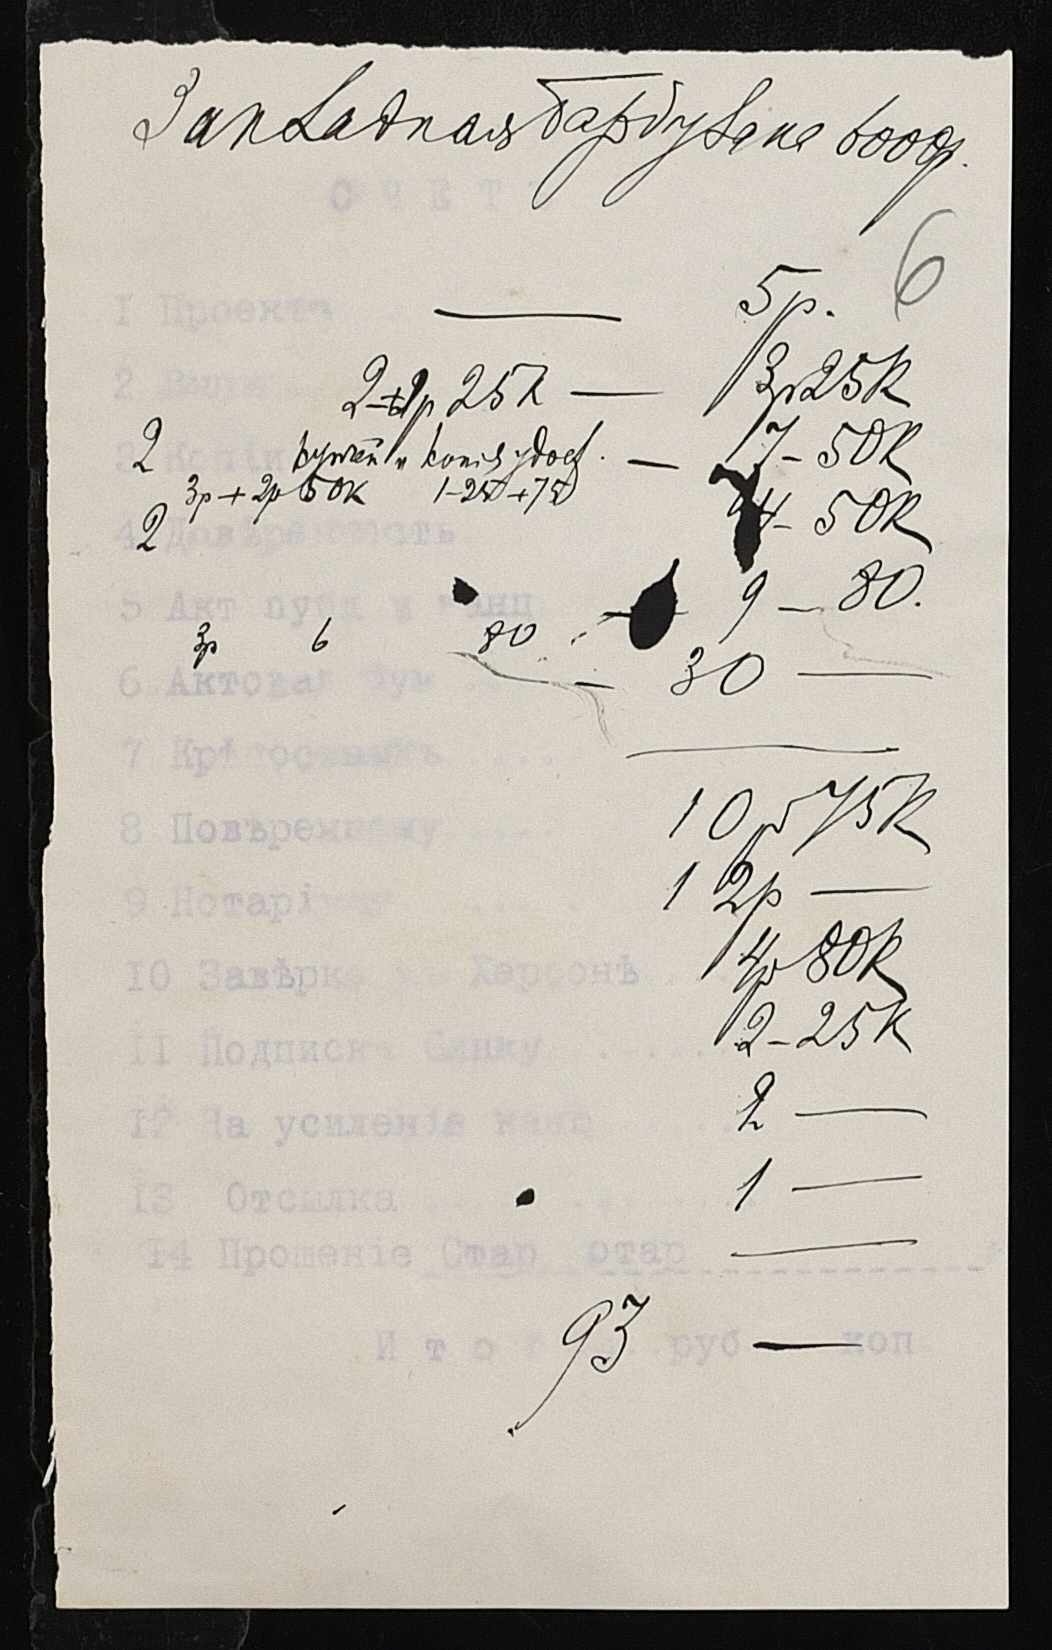 Закладная Барбулена 6000р.
С Ч Е Т Ъ
6
1 Проекта — 5р.
2 2+1р 25к — 3р25к
2 3 Копіи купчей и копія удост. — 7-50к
3р+2р50к 1-25+75
2 4 Довѣренность 4-50к
5 Акт пуб и канц — 9-80.
3р 6 80
6 Актовая бум — 30 —
7 Крѣпостныхъ .... 10р75к
8 Повѣренному .... 12р —
9 Нотаріусу .... 4р80к
10 Завѣрка Херсонѣ 2-25к
11 Подписка банку 2 —
12 На усиленіе канц 1 —
13 Отсылка —
14 Прошеніе Стар отар
И т о г 93 руб — коп